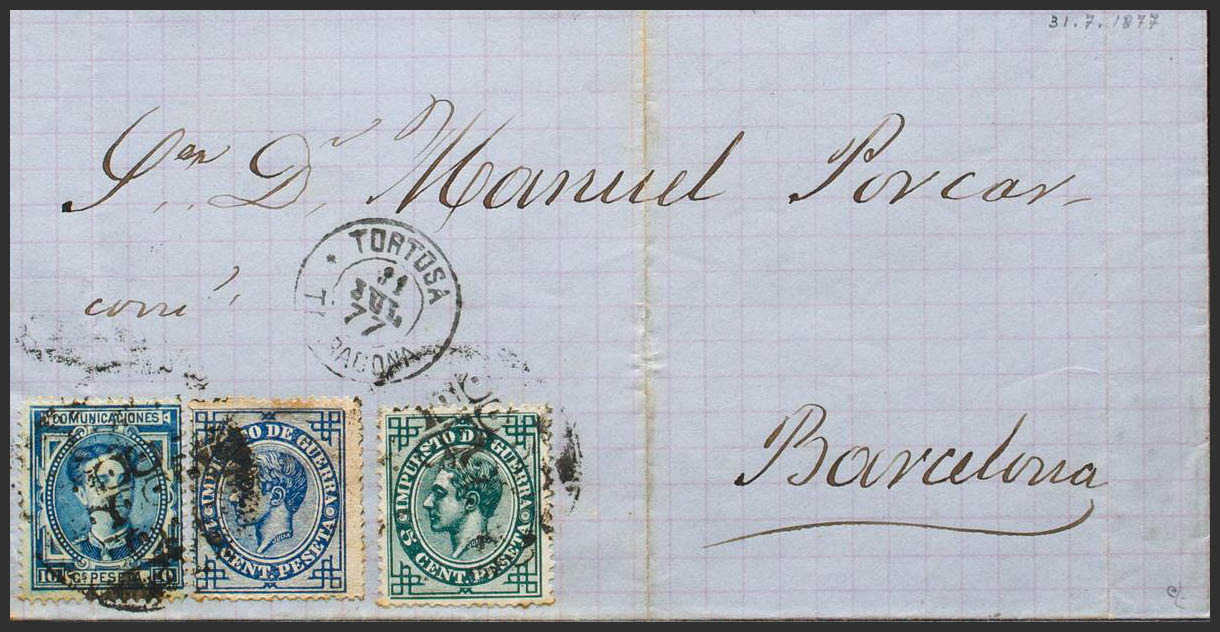 31.7.1877
Sor Dn Manuel Porcar
TORTOSA
31 JUL 77
corre
Barcelona
COMUNICACIONES
10 Cs PESETA 10
IMPUESTO DE GUERRA
CENT. PESETA
IMPUESTO DE GUERRA
5 CENT. PESETA